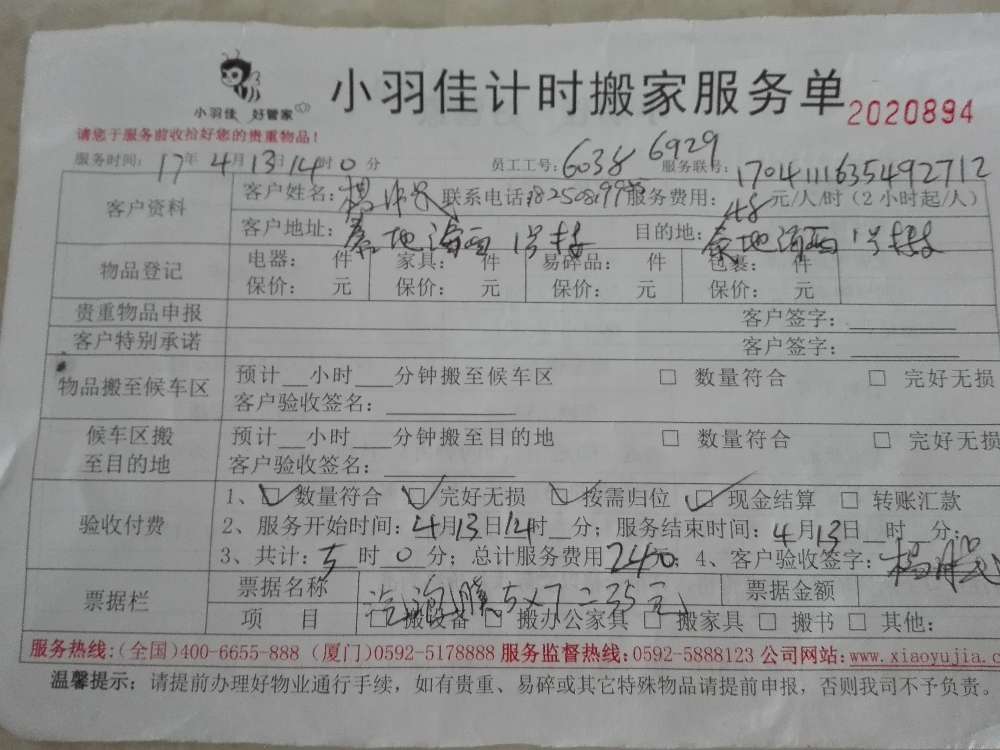 小羽佳 好管家
小羽佳计时搬家服务单 2020894
请您于服务前收拾好您的贵重物品！
服务时间：17年4月13日14时0分 员工工号：6038 6929 服务联号：1704111635492712
客户资料 客户姓名：杨 联系电话 服务费用：48元/人/时（2小时起/人）
客户地址：泰地海西1号楼 目的地：泰地海西1号楼
物品登记 电器： 件 家具： 件 易碎品： 件 包裹： 件
保价： 元 保价： 元 保价： 元 保价： 元
贵重物品申报 客户签字：
客户特别承诺 客户签字：
物品搬至候车区 预计__小时___分钟搬至候车区 □ 数量符合 □ 完好无损
客户验收签名：
候车区搬至目的地 预计__小时___分钟搬至目的地 □ 数量符合 □ 完好无损
客户验收签名：
验收付费 1、☑数量符合 ☑完好无损 ☑按需归位 ☑现金结算 □ 转账汇款
2、服务开始时间：4月13日14时__分；服务结束时间：4月13日__时__分；
3、共计：5时0分；总计服务费用2400；4、客户验收签字：杨
票据栏 票据名称 票据金额
汽泡膜5x7=35元
项 目 □搬设备 □ 搬办公家具 □ 搬家具 □ 搬书 □ 其他：
服务热线：（全国）400-6655-888（厦门）0592-5178888 服务监督热线：0592-5888123 公司网站：www.xiaoyujia.c
温馨提示：请提前办理好物业通行手续，如有贵重、易碎或其它特殊物品请提前申报，否则我司不予负责。